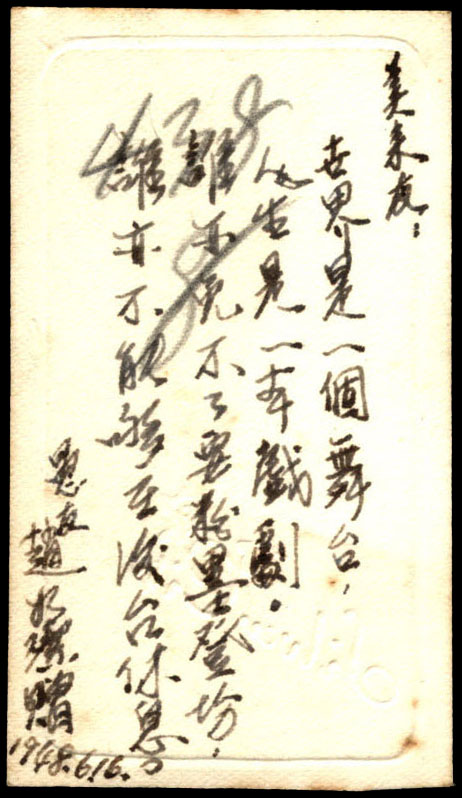 美來友：
世界是一個舞台，
人生是一本戲劇．
誰亦免不了要粉墨登場，
誰亦不能够在後台休息。
愚友
趙 贈
1948.6.16.